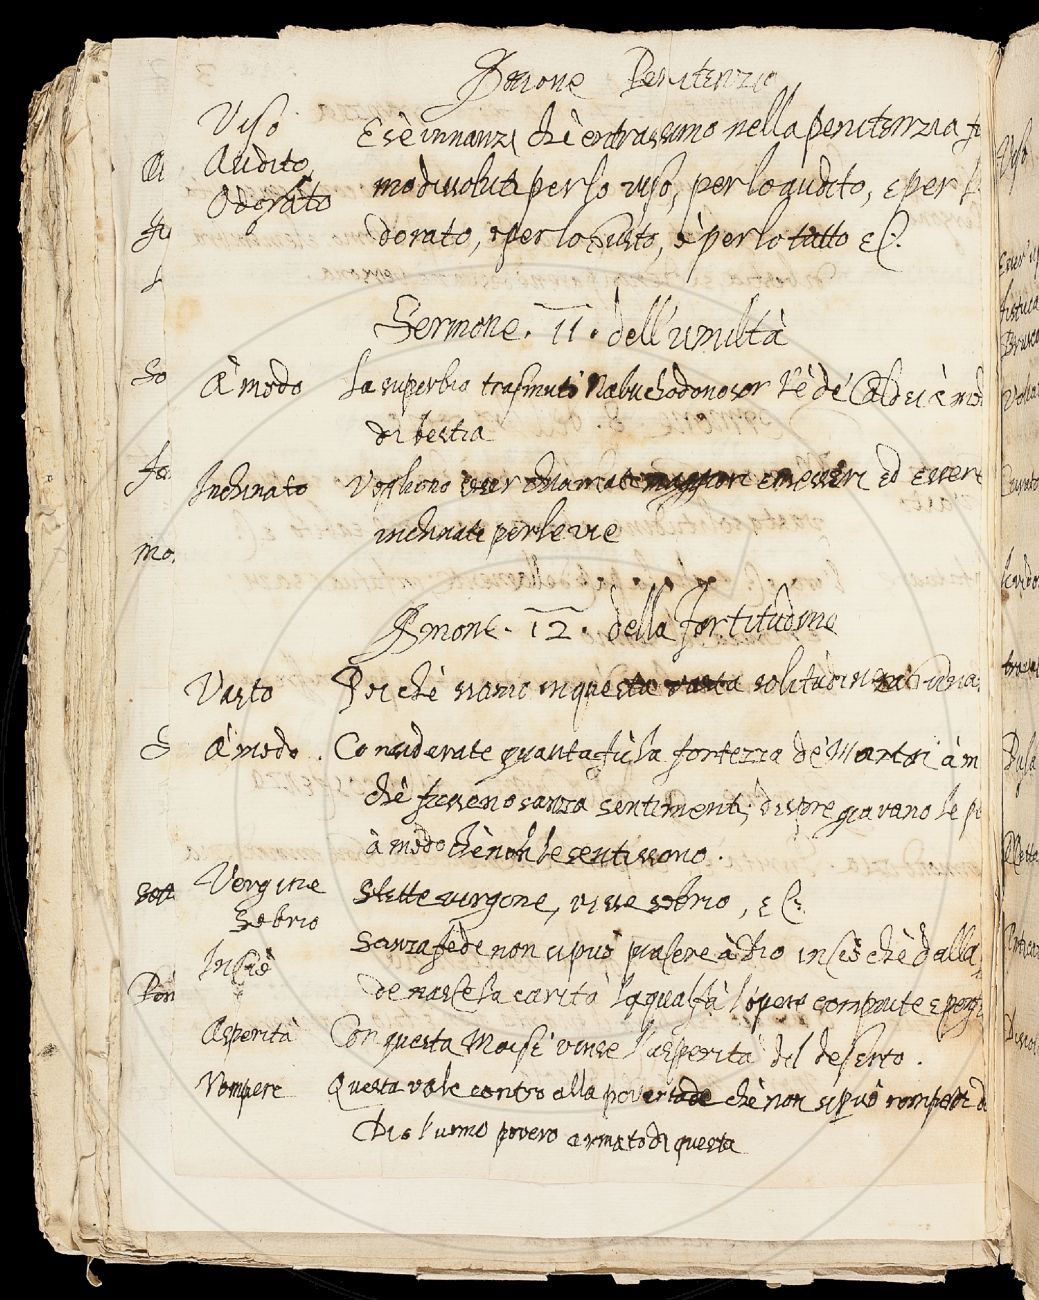 Sermone Penitenzia
Viso
E se innanzi chè entrassimo nella penitenzia fu
Audito
mo dissoluti per lo viso, per lo audito, e per l
Odorato
dorato, e per lo Gusto, e per lo tatto &c.
Sermone. 11. dell'umiltà
À modo
La superbia trasmutò Nabuchodonosor Rè dè Caldei à mod
di bestia
Inchinato
Vogliono esser chiamati maggiori e messeri ed essere
inchinati per le vie
Sermone. 12. della fortitudine
Vasto
Poi chè siamo in questa vasta solitudine
À modo.
Considerate quanta fù la fortezza dè Martori à m
chè fusseno sanza sentimenti, dispregiavano le p
à modo chè non le sentissono.
Vergine
Stette vergene, visse sobrio, &c.
Sobrio
Sanza fede non si può piacere à Dio in ciò chè dalla
In ciò
de nasce la carità la qual fà l'opere compiute e
Asperità
Con questa Moisè vinse l'asperità del deserto.
Rompere
Questa vale contro alla povertade chè non si può rompere d
Dio l'uomo povero armato di questa